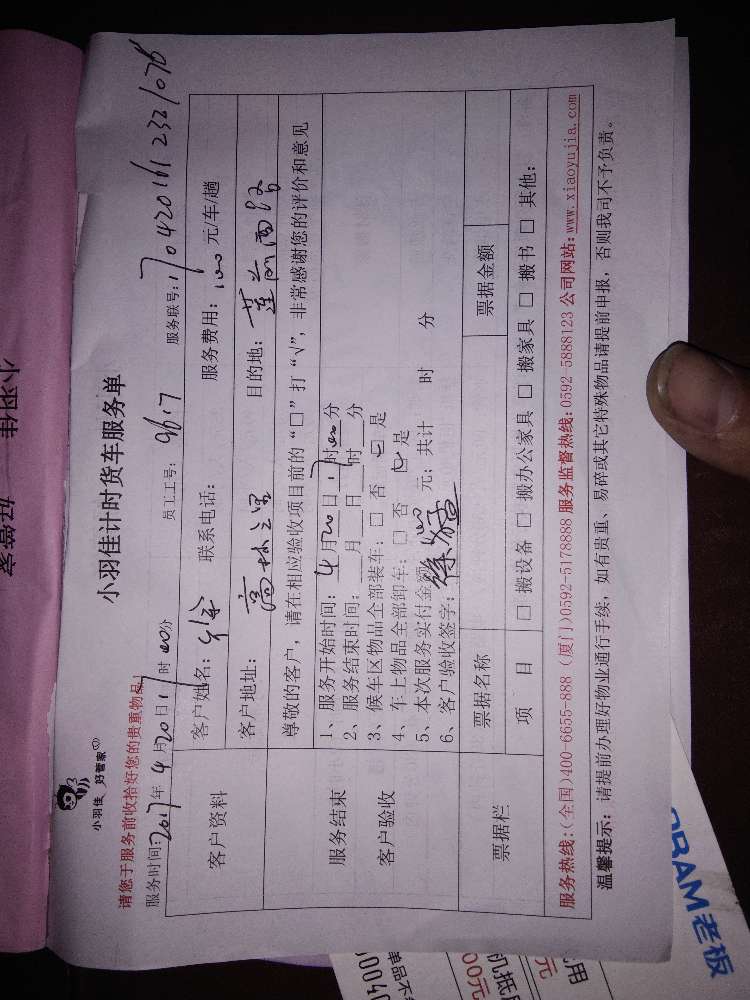 小羽佳 好管家
小羽佳计时货车服务单
请您于服务前收拾好您的贵重物品!
服务时间:2017年4月20日17时00分 员工工号:9617 服务联号:1704201612321076
客户资料
客户姓名: 联系电话: 服务费用:100元/车/趟
客户地址:高林三里 目的地:莲前西路
服务结束
客户验收
尊敬的客户,请在相应验收项目前的“□”打“√”,非常感谢您的评价和意见
1、服务开始时间:4月20日17时00分
2、服务结束时间: 月 日 时 分
3、候车区物品全部装车:□ 否 ☑ 是
4、车上物品全部卸车:□ 否 ☑ 是
5、本次服务实付金额 100 元;共计 时 分
6、客户验收签字:
票据栏
票据名称 票据金额
项 目 □ 搬设备 □ 搬办公家具 □ 搬家具 □ 搬书 □ 其他:
服务热线:(全国)400-6655-888 (厦门)0592-5178888 服务监督热线:0592-5888123 公司网站:www.xiaoyujia.com
温馨提示:请提前办理好物业通行手续,如有贵重、易碎或其它特殊物品请提前申报,否则我司不予负责。
小羽佳 好管家
ORAM老板